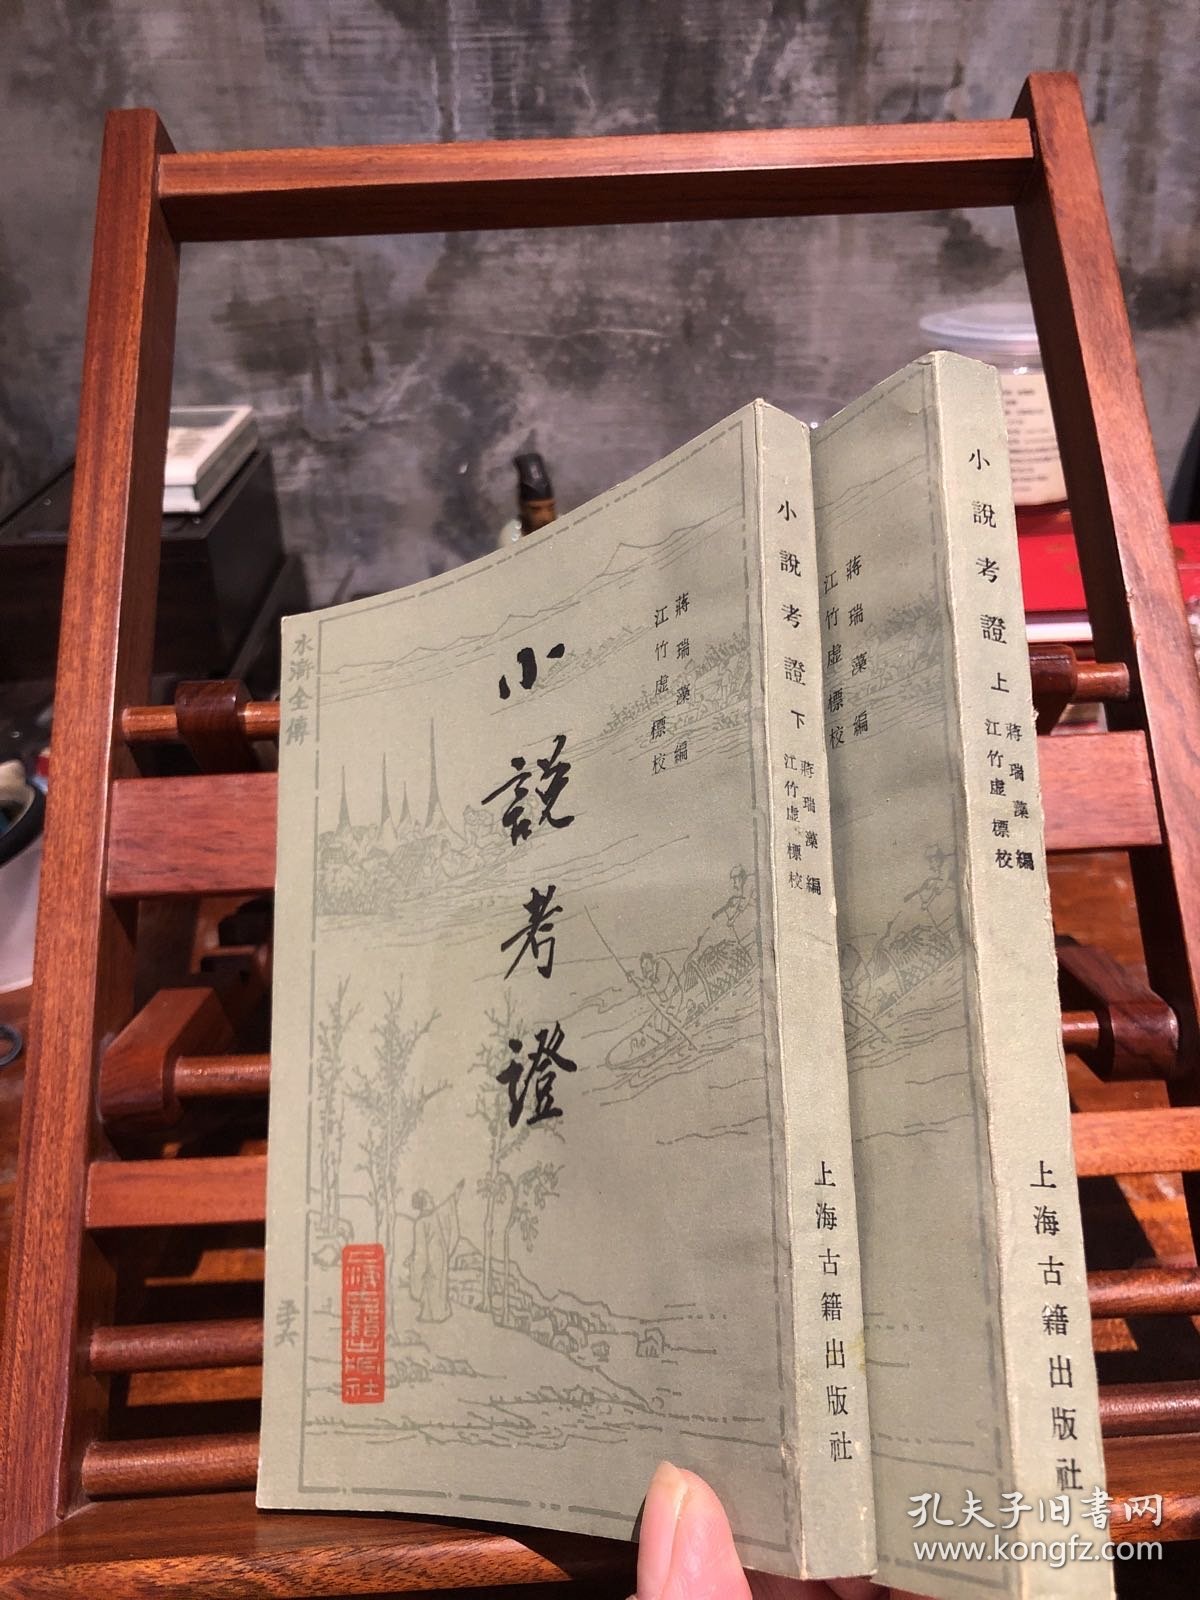 水滸全傳
小說考證
蔣瑞藻編
江竹虛標校
上海古籍出版社
小說考證 下
蔣瑞藻編
江竹虛標校
上海古籍出版社
蔣瑞藻編
江竹虛標校
小說考證 上
蔣瑞藻編
江竹虛標校
上海古籍出版社
孔夫子旧书网
www.kongfz.com